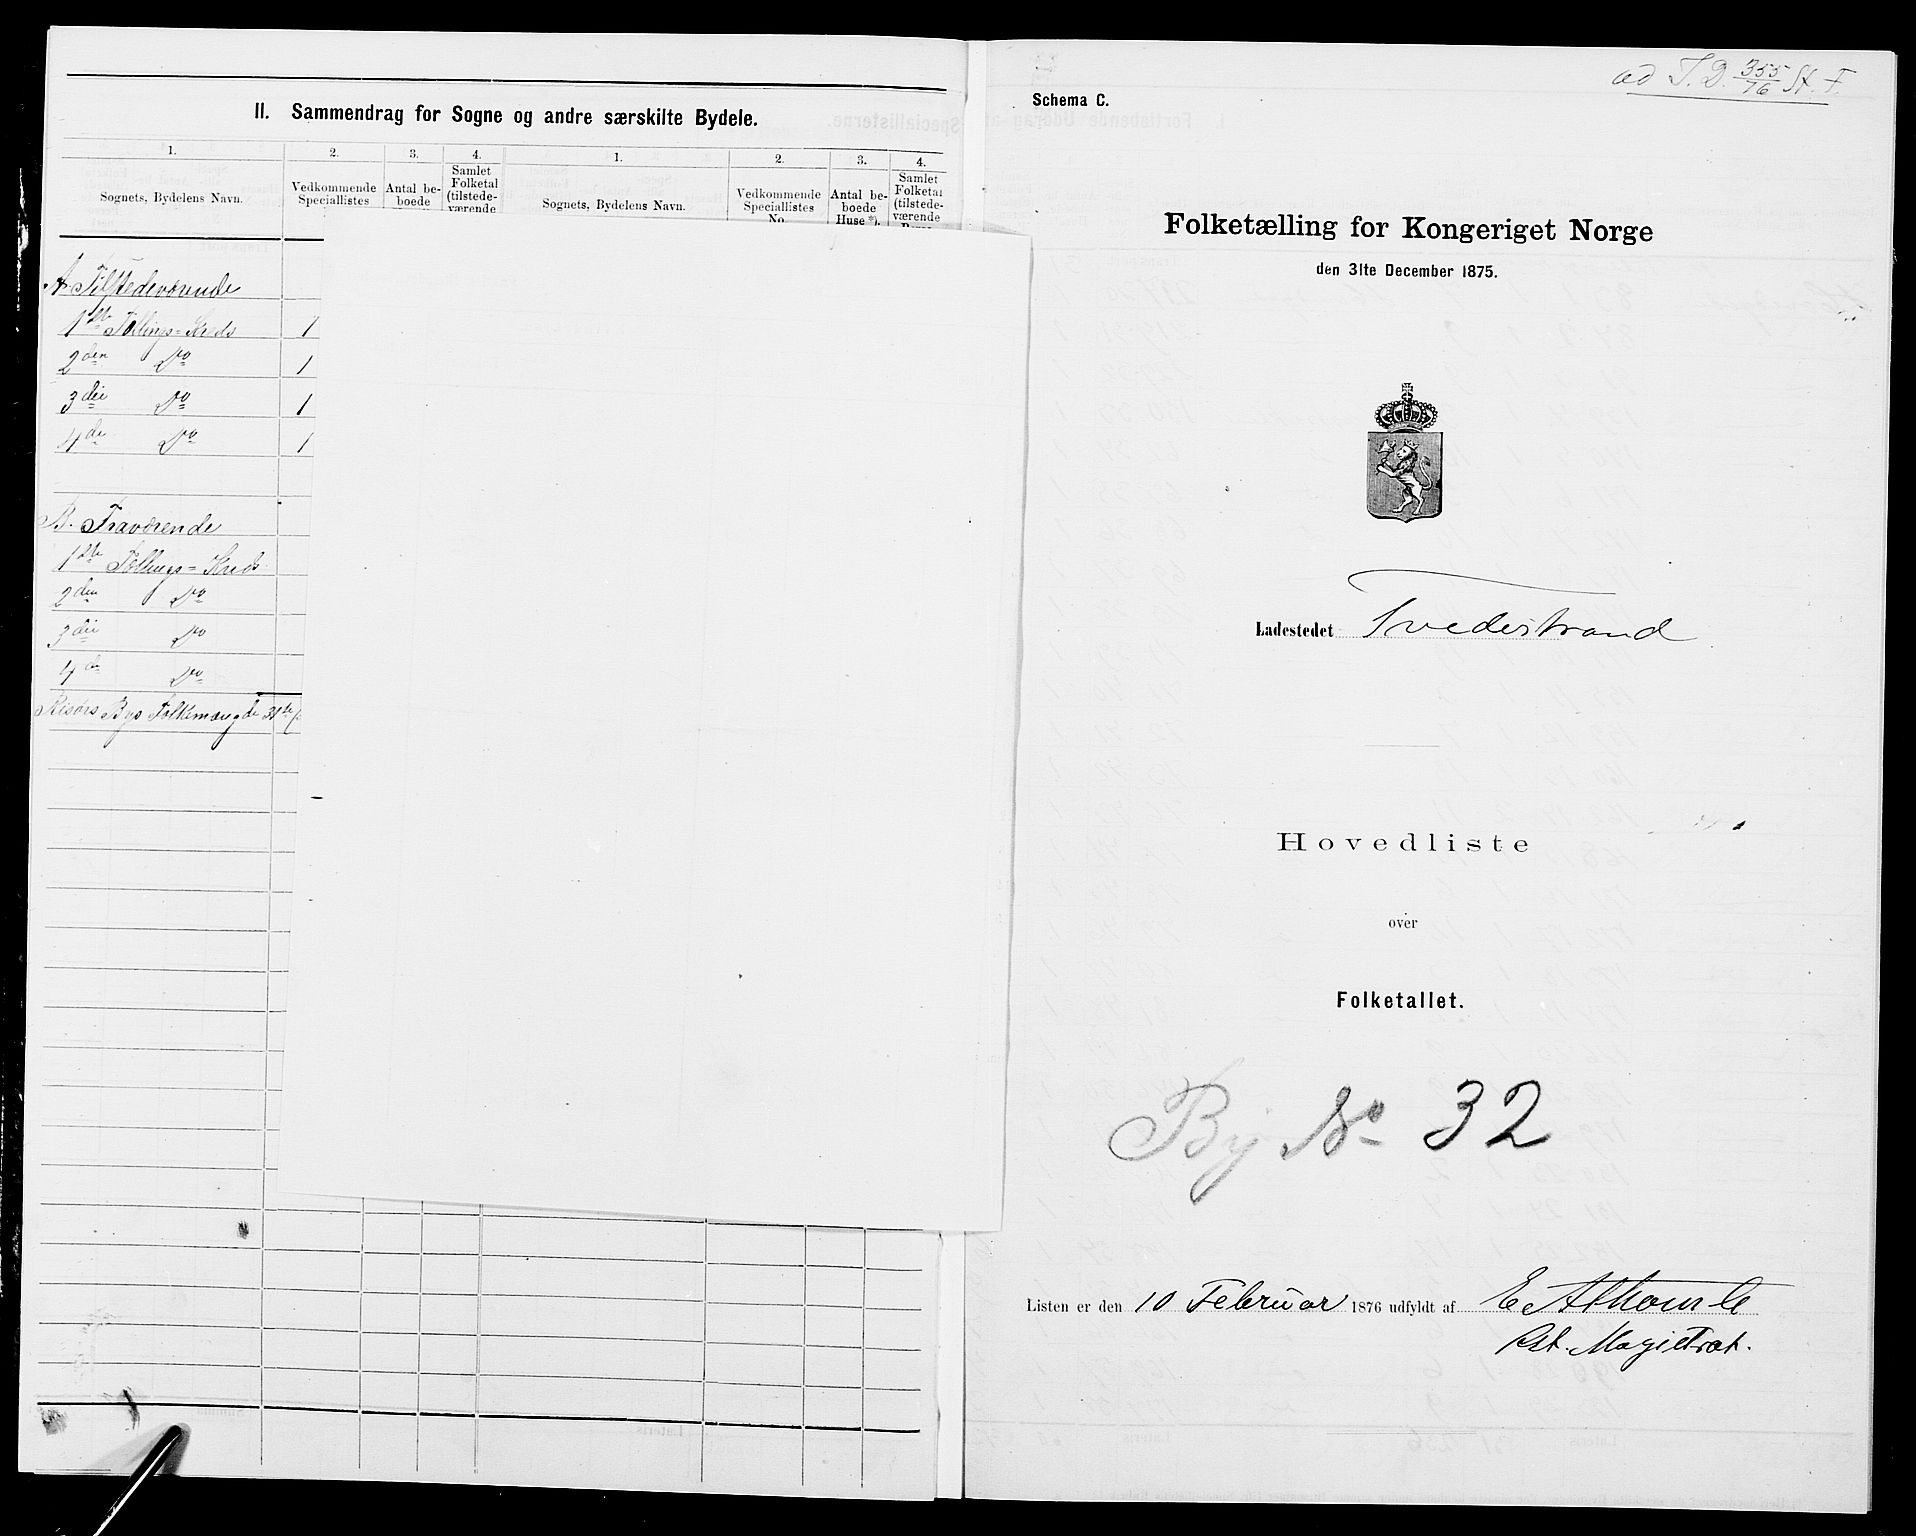 II. Sammendrag for Sogne og andre særskilte Bydele.
1. 2. 3. 4. 1. 2. 3. 4.
Sognets, Bydelens Navn.
Vedkommende
Speciallistes
Antal be-
boede
Samlet
Folketal
(tilstede-
værende
Sognets, Bydelens Navn.
Vedkommende
Speciallistes
No.
Antal be-
boede
Huse *).
Samlet
Folketal
(tilstede-
værende
A. Tilstedeværende
1ste Tællings=Kreds 1
2den Do 1
3die Do 1
4de Do 1
B. Fraværende
1ste Tællings=Kreds
2den Do
3die Do
4de Do
Risørs Bys Folkemængde 31te
ad T.D. 355/76 St. F.
Schema C.
Folketælling for Kongeriget Norge
den 31te December 1875.
Ladestedet Tvedestrand
Hovedliste
over
Folketallet.
By No 32
Listen er den 10 Februar 1876 udfyldt af
cst. Magistrat.